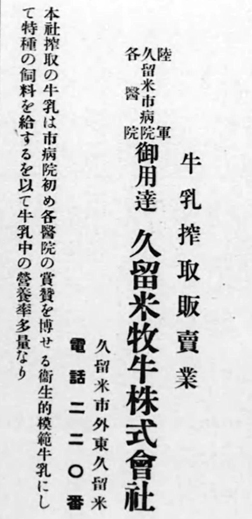 牛乳搾取販賣業
陸軍
久留米市病院
各醫院
御用達
久留米牧牛株式會社
久留米市外東久留米
電話二二〇番
本社搾取の牛乳は市病院初め各醫院の賞賛を博せる衞生的模範牛乳にし
て特種の飼料を給するを以て牛乳中の營養率多量なり